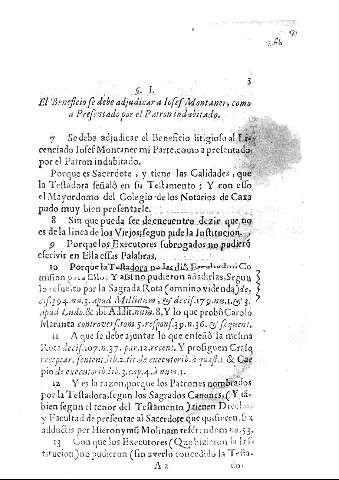 3
§. I.
El Beneficio se debe adjudicar a Iosef Montaner, como
a Presentado por el Patron indubitado.
7 Se debe adjudicar el Beneficio litigioso al Licenciado
Iosef Montaner mi Parte, como a presentado
por el Patron indubitado.
Porque es Sacerdote, y tiene las Calidades, que
la Testadora señalò en su Testamento; Y con esso
el Mayordomo del Colegio de los Notarios de Caza
pudo muy bien presentarle.
8 Sin que pueda ser de encuentro dezir que no
es de la linea de los Viejos, segun pide la Institucion.
9 Porque los Executores subrogados no pudierõ
escrivir en Ella essas Palabras.
10 Porque la Testadora no les diò Comision
para Ello. Y assi no pudieron añadirlas, Segun
lo resuelto por la Sagrada Rota (omnino videnda) decis.
394. nu. 3. apud & decis. 179. nu. 1. & 3.
apud Ludo. & ibi Addit. num. 8. Y lo que probò Carolo
Marinta controvers. tom. 5. respons. 39. n. 36. & sequent.
11 A que se debe ajuntar lo que enseñò la mesma
Rota decis. 107. n. 37. par. 12. recent. Y prosiguen
receptar. sentent. lib. 2. tit. de executorib. à quæst. 1. & Carpio
de executorib. lib. 3. cap. 4. à num. 1.
12 Y es la razon, porque los Patrones nombrados
por la Testadora, segun los Sagrados Canones, (Y tãbien
segun el tenor del Testamento) tienen Derecho,
y Facultad de presentar al Sacerdote que quisieren, Ex
adductis per Hieronymũ Molinam referendum nu. 53.
13 Con que los Executores (Que hizieron la Institucion)
no pudieron (sin averlo concedido la Testa-
A 2
do-